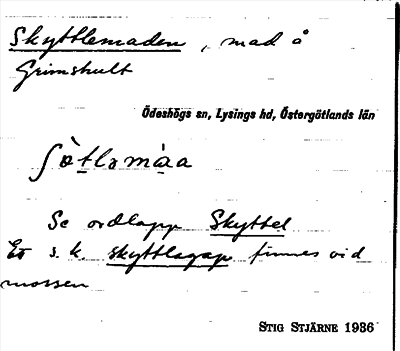 Skyttlemaden, mad å
Grimshult
Ödeshögs sn, Lysings hd, Östergötlands län
Se ordlapp Skyttel
Et s. k. skyttlagap finnes vid
mossen
STIG STJÄRNE 1936